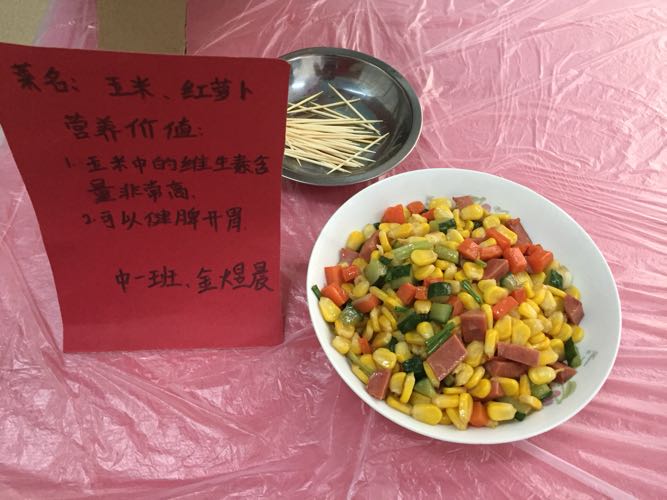 菜名：玉米、红萝卜
营养价值：
1.玉米中的维生素含
量非常高.
2.可以健脾开胃.
中一班、金煜晨